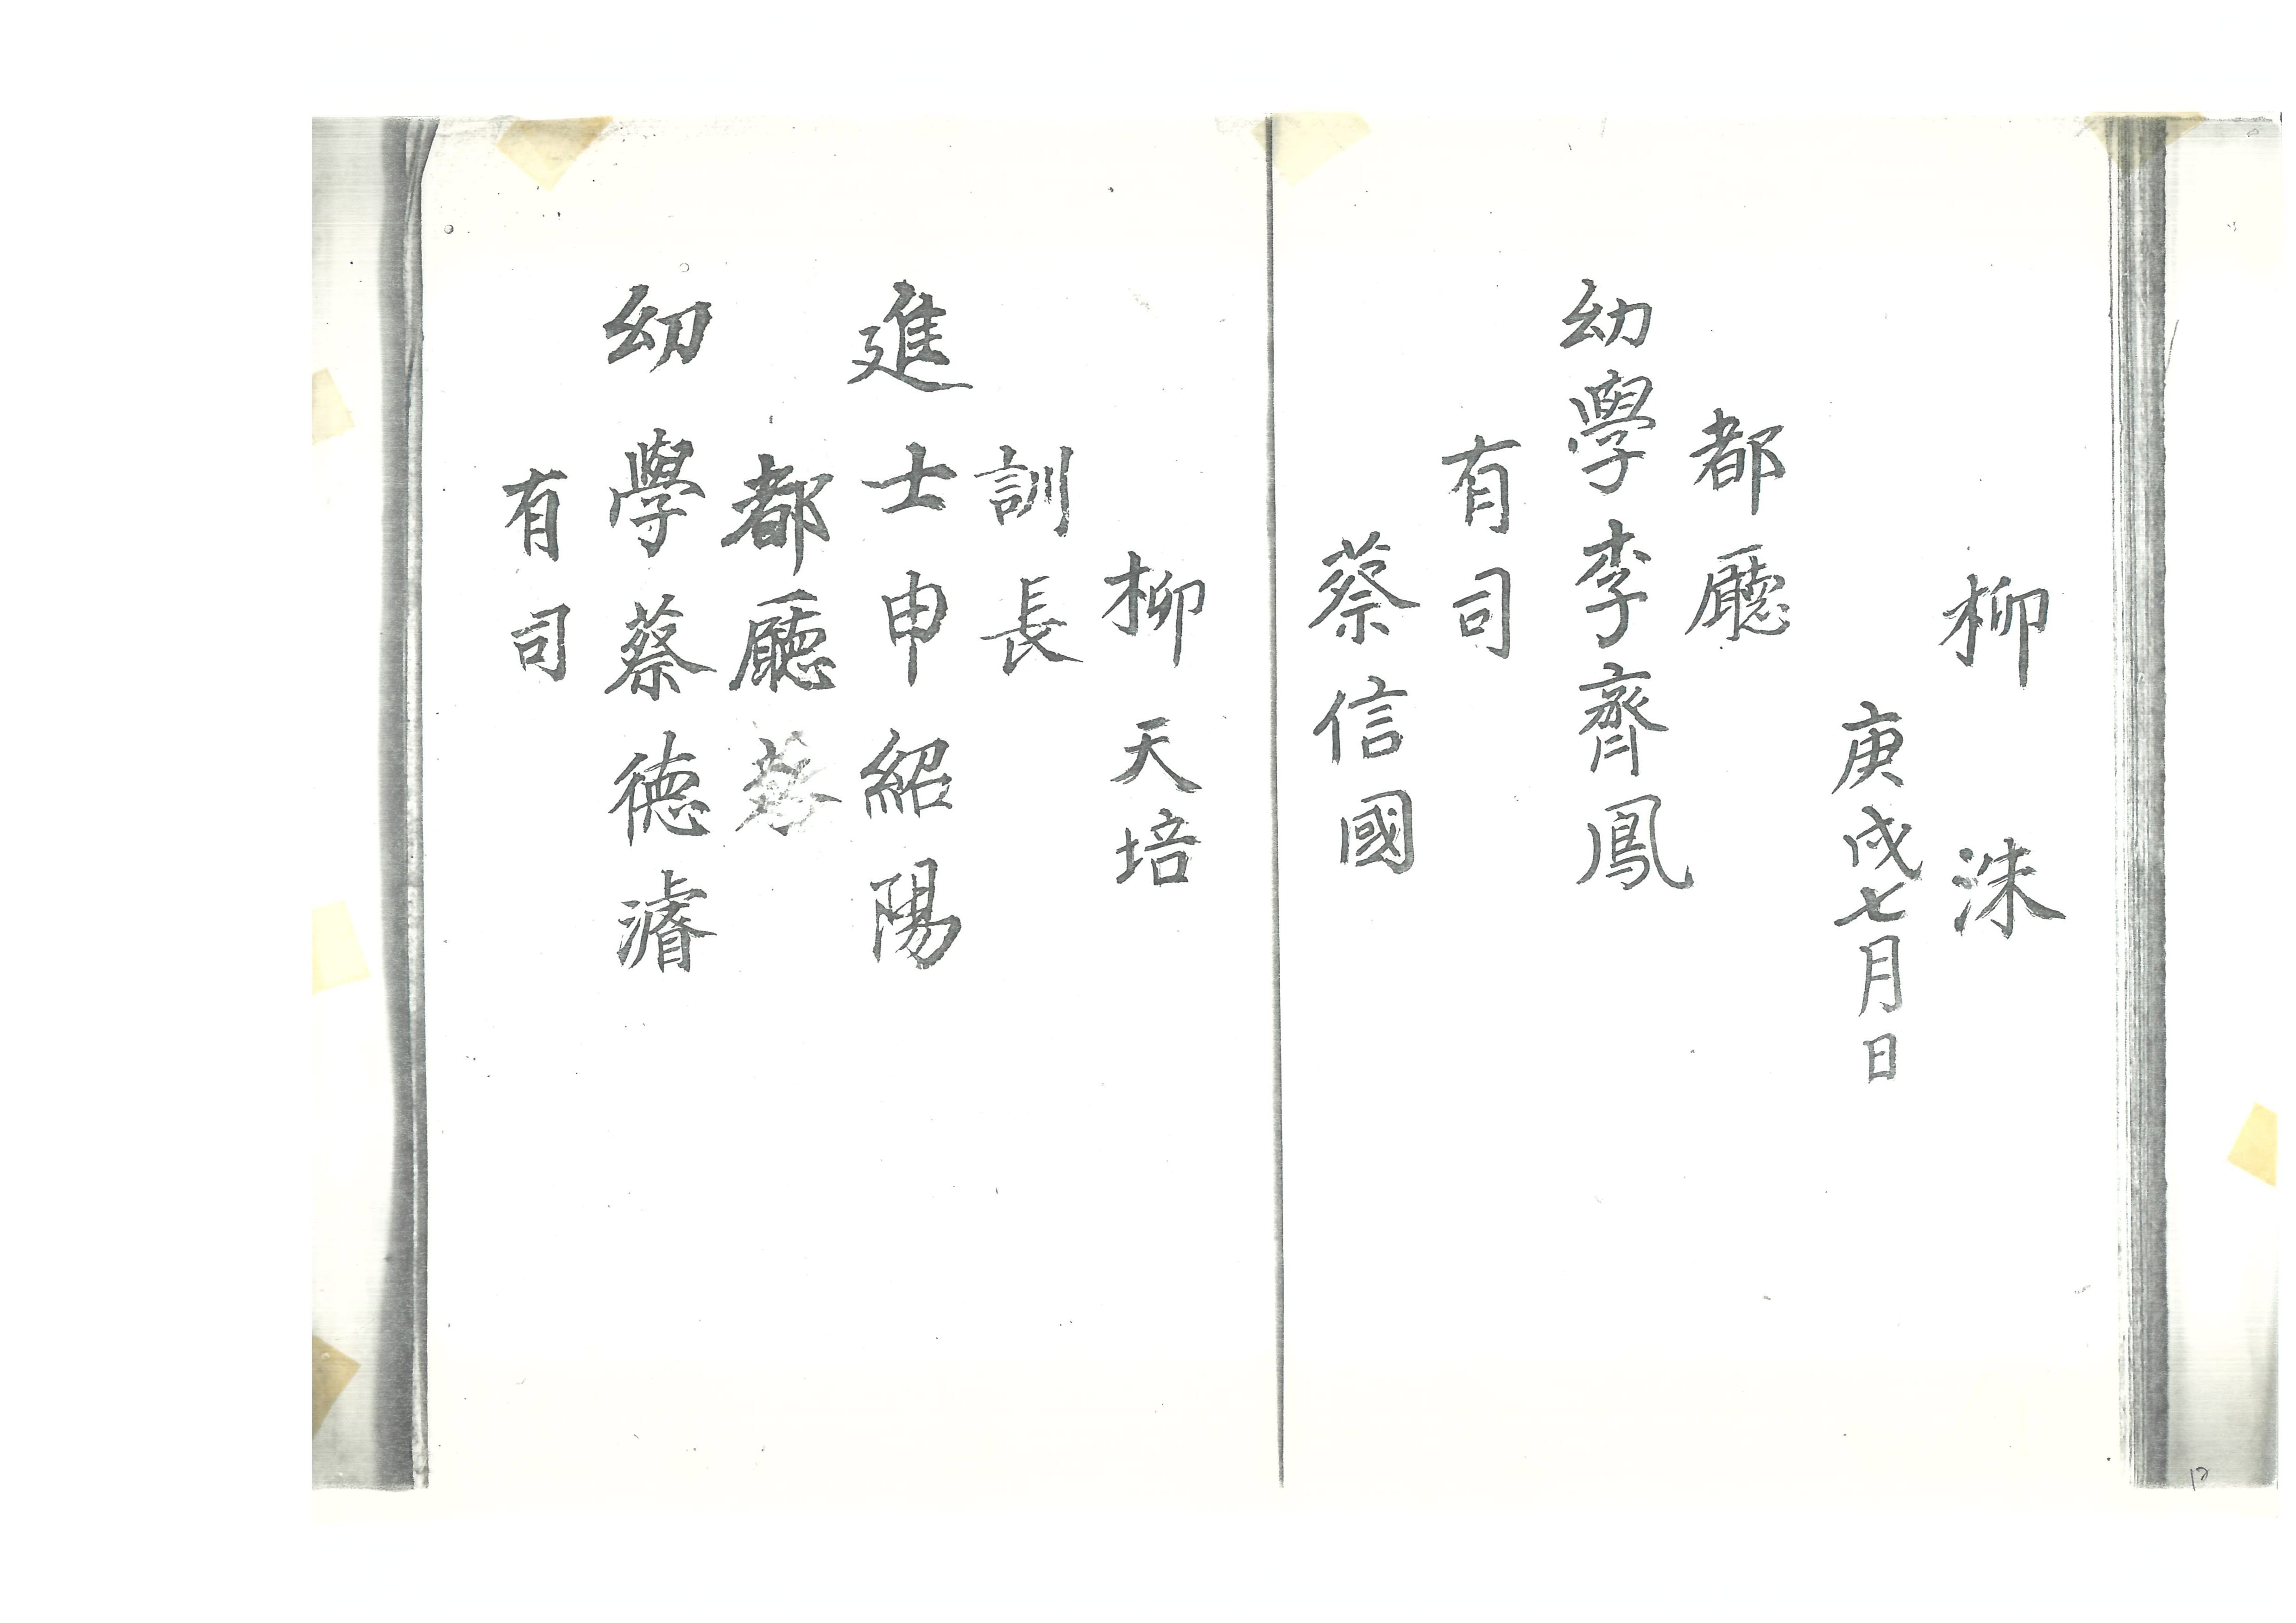 柳洙
庚戌七月日
都廳
幼學李齊鳳
有司
蔡信國
柳天培
訓長
進士申紹陽
都廳
幼學蔡德濬
有司